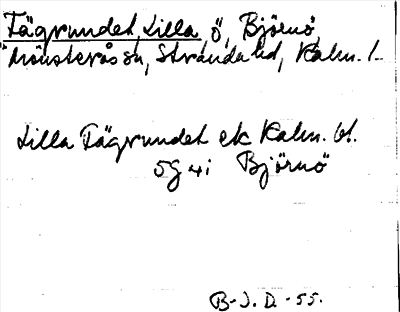 Tägrundet, Lilla ö, Björnö,
Mönsterås sn, Stranda hd, Kalm. l.
Lilla Tägrundet ek Kalm. bl.
5G 4i Björnö
B-J. D. -55.